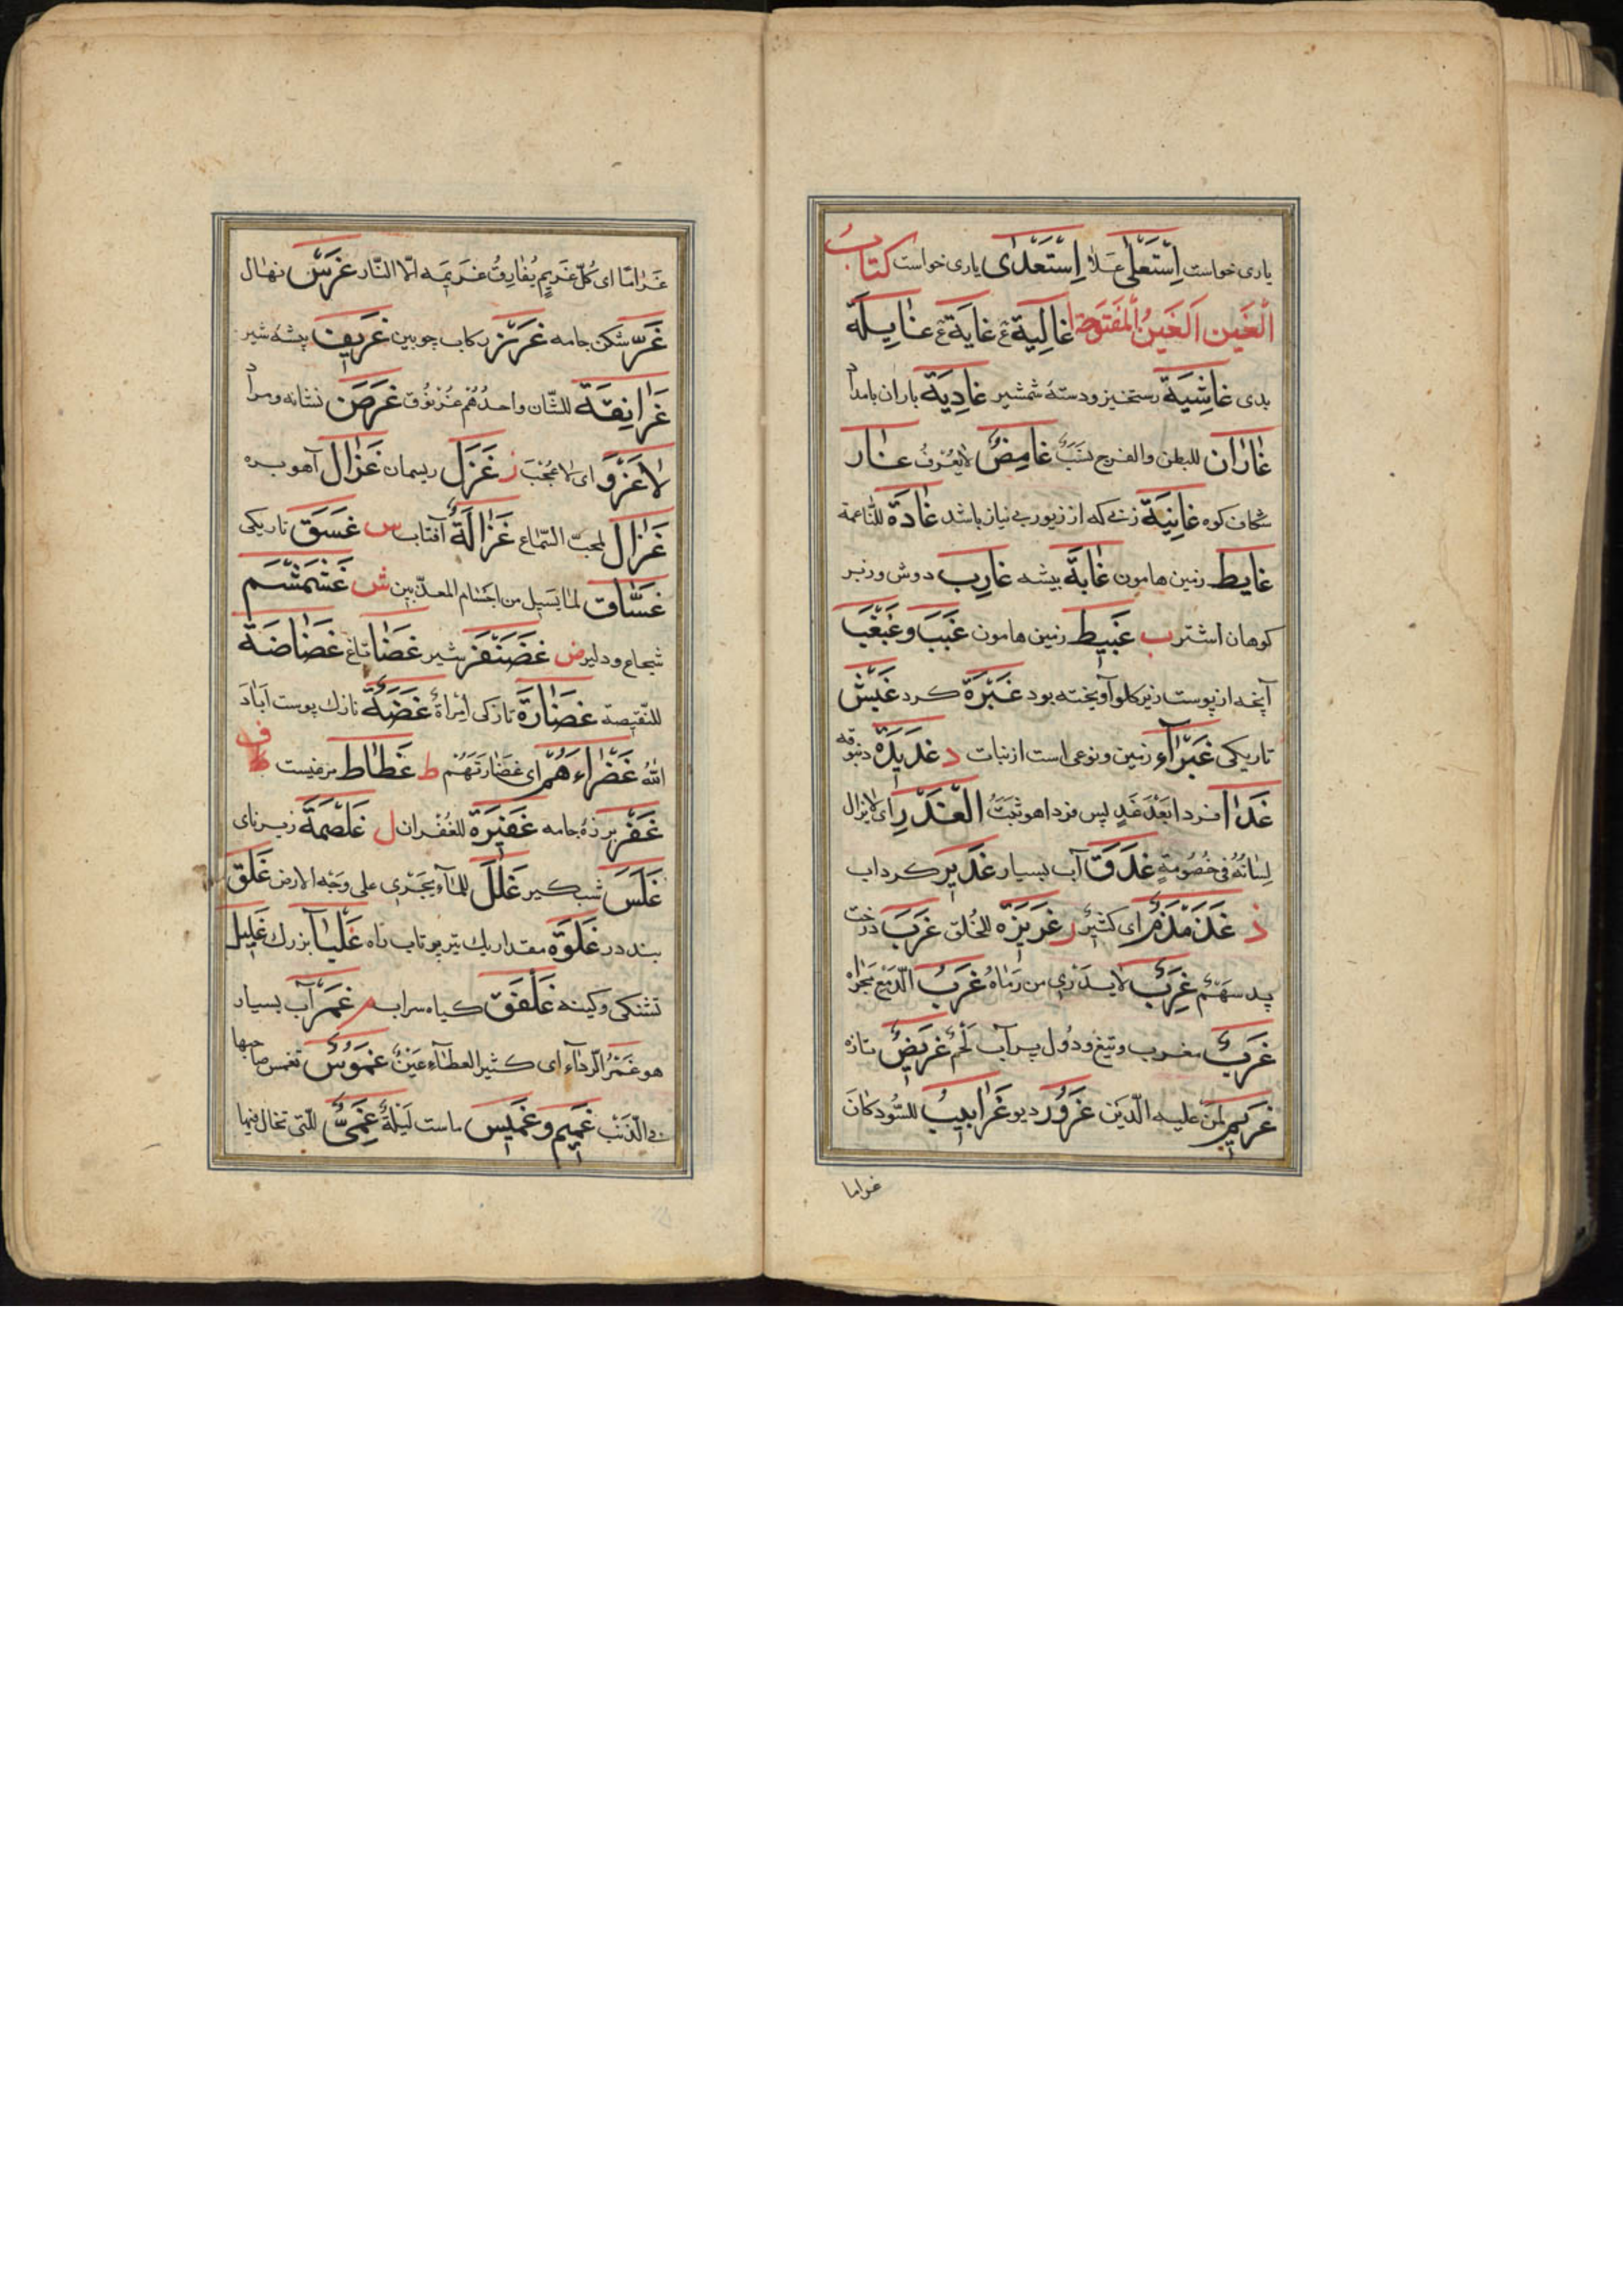 یاری خواست اِسْتَعْلٰی عَلا اِسْتَعْدٰی یاری خواست کتابُ
الْغَین اَلغَینُ الْمَفتوحة ا غالِیَة ع غایَة ع غایِلَة
بدی غاشِیَة رستخیز و دستهٔ شمشیر غادِیَة باران بامداد
غٰارٰان للبطن والفرج نَسَبٌ غامِضٌ لایُعْرَفُ غار
شکاف کوه غانِیَة زنی که از زیور بی نیاز باشد غٰادَة للنّاعمة
غایِط زمین هامون غٰابَة بیشه غارِب دوش و زبر
کوهان اشتر ب غَبیط زمین هامون غَبَب و غَبْغَب
آنچه از پوست زیر کلو آویخته بود غَبَرَة کرد غَبَش
تاریکی غَبْرٰآء زمین و نوعی است از نبات د غَدیرَة
غَداً فردا بَعْدَ غَدٍ پس فردا هو ثَبْتُ الْغَدَرِ ای لایزال
لِسٰانُهُ فی خُصُومَةٍ غَدَق آب بسیار غَدیر کرداب
ذ غَذَمْذَم ای کثیر ر غَریزَة للخُلق غَرَب درخت
پد سَهْمٌ غَرَبٌ لایُدْرٰی من رَمٰاهُ غَرْبُ الدَّمْعِ مَجْراه
غَرْبٌ مغرب و تیغ و دول پرآب لَحْمٌ غَریضٌ تازه
غَریم لِمَنْ علیه الدَّیْن غَرُور دیو غَرٰابیبُ للسُّود کانَ
غراما
غَرٰامًا ای کُلّ غَریمٍ یُفٰارِقُ غَریمَه الّا النّار غَرْس نهال
غَرّ شکن جامه غَرْز رکاب چوبین غَریف بیشهٔ شیر
غَرٰانِقَة للشّبّان واحدُهُم غُرْنُوق غَرَض نشانه و مراد
لاٰ غَرْوَ ای لا عَجَبَ ز غَزْل ریسمان غَزٰال آهو بره
غَزٰال لمحبّ السّماع غَزٰالَةُ آفتاب س غَسَق تاریکی
غَسّٰاق لما یَسیل من اجسٰام المعذّبین ش غَشَمْشَم
شجاع و دلیر ض غَضَنْفَر شیر غَضَا تاغ غَضٰاضَة
للنّقیصة غَضٰارَة تازکی اِمْرَأَةٌ غَضَّةٌ نازك پوست اَبٰادَ
اللّٰهُ غَضْرٰاءَهُمْ ای غَضٰارَتَهُمْ ط غَطٰاط مرغیست ف
غَفْر پرزهٔ جامه غَفیرَة للغُفْران ل غَلْصَمَة زیر نای
غَلَس شب کیر غَلَل للمٰآء یَجْری علی وَجْه الارض غَلَق
بند در غَلْوَة مقدار یك تیر پرتاب راه غَلْبٰا بزرك غَلیل
تشنکی و کینه غَلْفَق کیاه سراب م غَمْر آب بسیار
هو غَمْرُ الرِّدٰآء ای کثیر العطٰآء عَیْنٌ غَمُوسٌ تغمس صاحبها
فی الذَّنْب غَمیم و غَمیس ماست لَیْلَةٌ غَمّیٰ للّتی تخال فیها